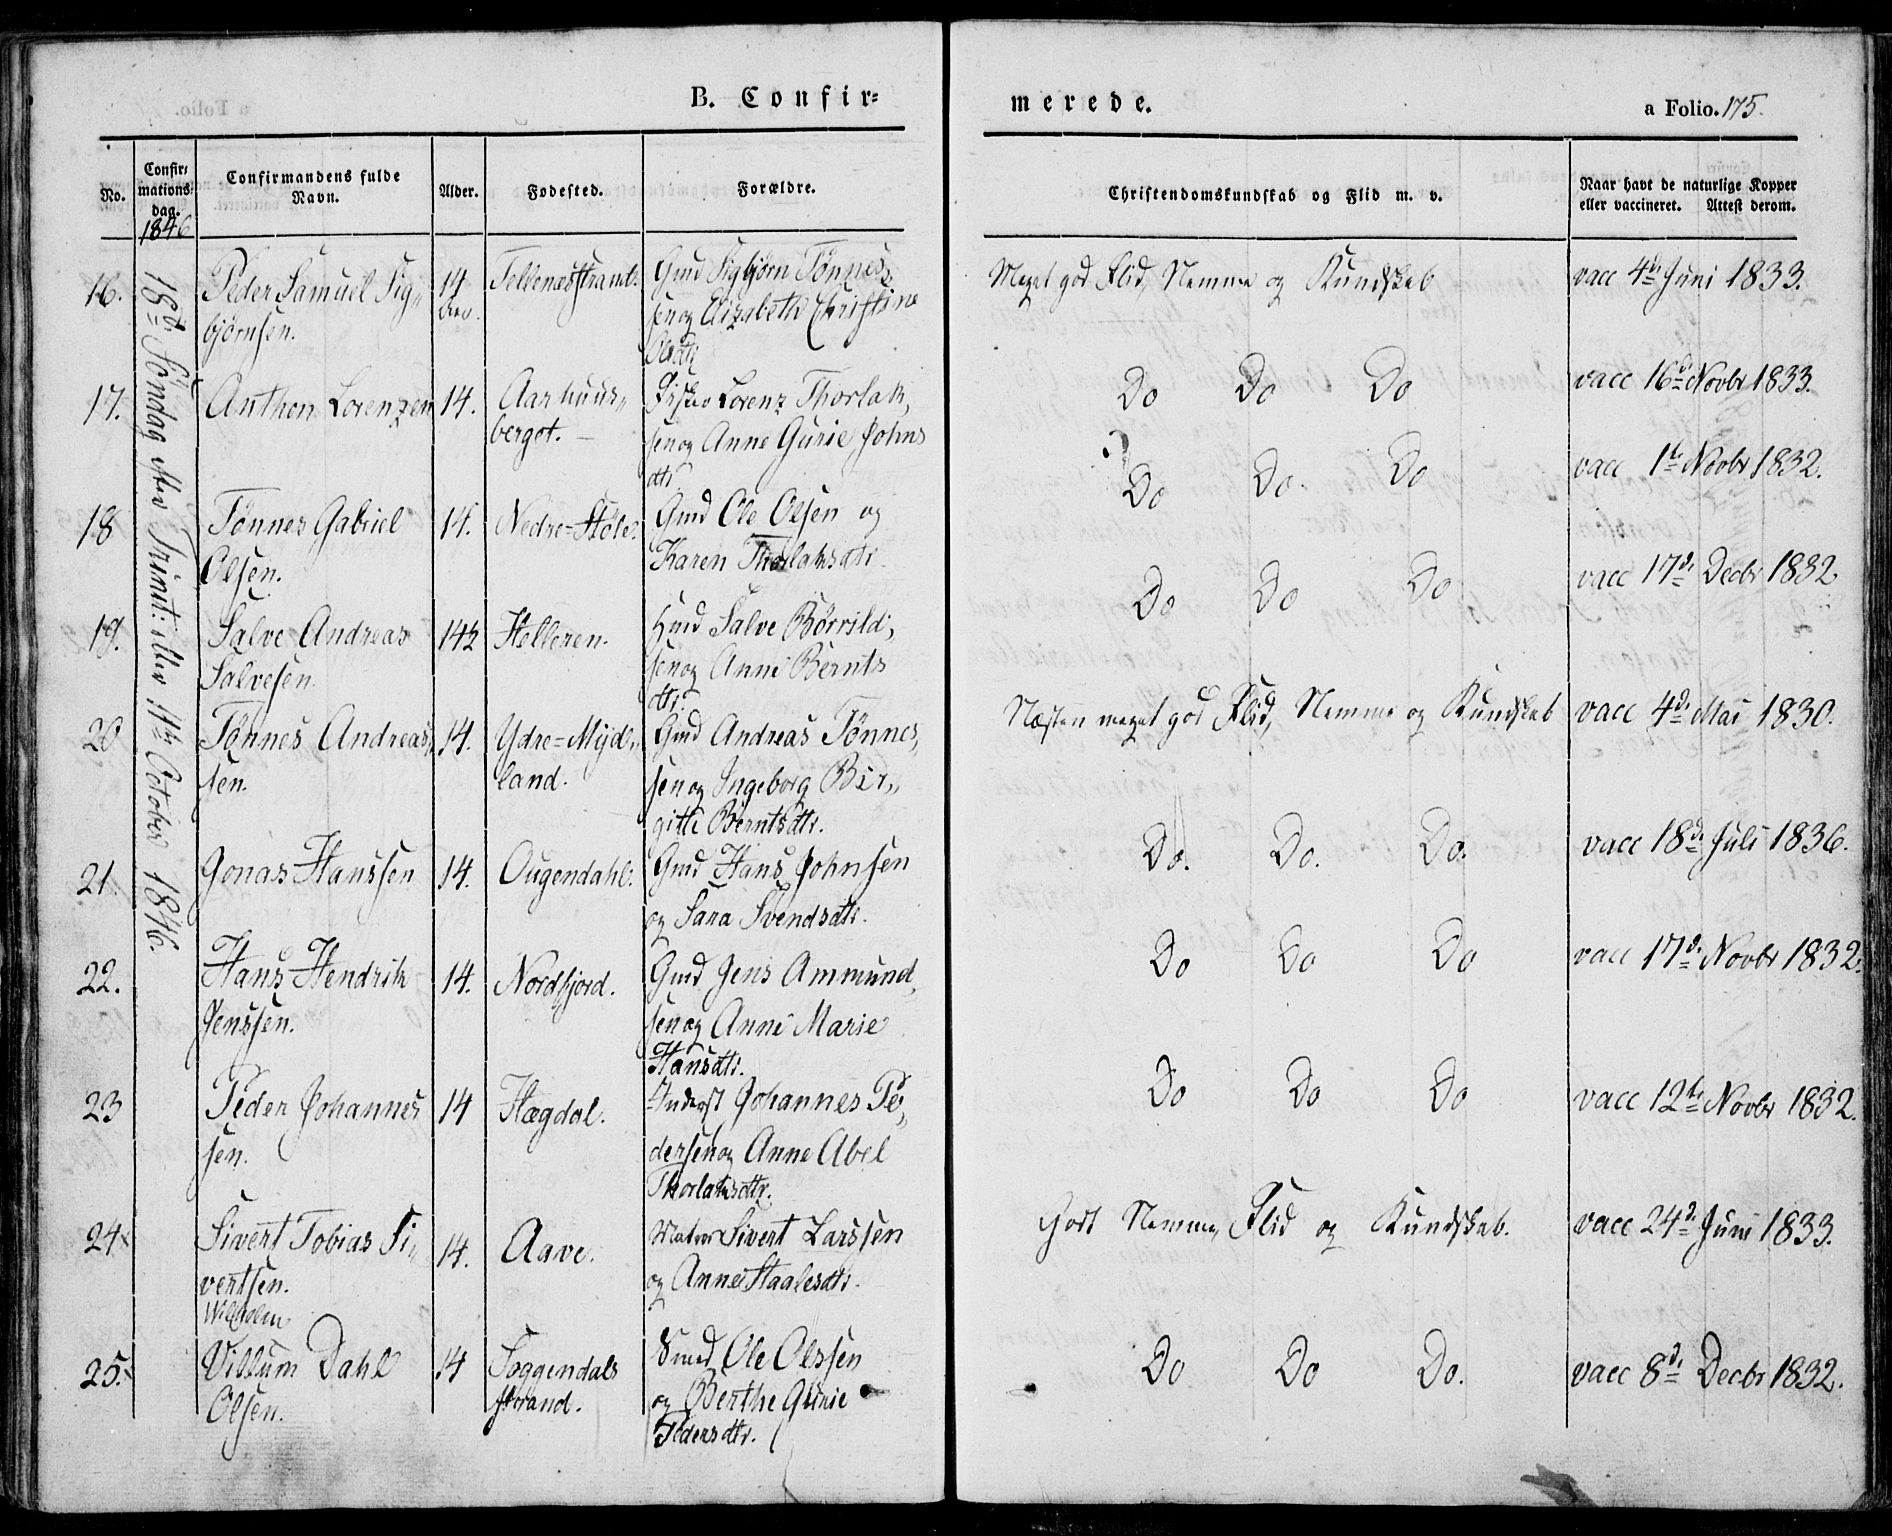 B. Confir=
merede.
a Folio. 175.
No.
Confir=
mations=
dag.
Confirmandens fulde
Navn.
Alder.
Fødested.
Forældre.
Christendomskundskab og Flid m. v.
Naar havt de naturlige Kopper
eller vaccineret. Attest derom.
1846
18de Søndag efter Trinit: eller 11te October 1846.
16.
Peder Samuel Sig„
bjørnsen.
14
Tellenæsstrand.
Gmd Sigbjørn Tønnes,
sen og Elizabeth Christine
Olsdtr
Meget god Flid, Nemme og Kundskab
vacc 4de Juni 1833.
17.
Anthon Lorenzen
14.
Aarhuus„
berget.
Lorenz Thorlak,
sen og Anne Gurie Johns
dtr.
Do Do Do
vacc 16de Novbr 1833.
18
Tønnes Gabriel
Olsen.
14.
Nedre=Støle.
Gmd Ole Olsen og
Karen Thorlaksdtr.
Do Do. Do
vacc 1te Novbr 1832.
19.
Salve Andreas
Salvesen.
14½
Helleren.
Hmd Salve Børrild,
sen og Anne Bernts
dtr.
Do Do Do
vacc 17de Decbr 1832
20
Tønnes Andreas,
sen.
14.
Ydre=Mydl„
land.
Gmd Andreas Tønnes,
sen og Ingeborg Bir„
gitte Berntsdtr.
Næsten meget god Flid, Nemme og Kundskab
vacc 4de Mai 1830.
21.
Jonas Hanssen
14.
Ougendahl.
Gmd Hans Johnsen
og Sara Svendsdtr.
Do. Do. Do.
vacc 18de Juli 1836.
22.
Hans Hendrik
Jenssen.
14.
Nordfjord.
Gmd Jens Ammund,
sen og Anne Marie
Hansdtr.
Do Do Do
vacc 17de Novbr 1832.
23
Peder Johannes
sen.
14
Hægdal.
Inderst Johannes Pe,
dersen og Anne Abel
Thorlaksdtr.
Do Do Do
vacc 12te Novbr 1832.
24
Sivert Tobias Si„
vertsen.
14.
Aave.
Matros Sivert Larssen
og Anne Staalesdtr.
Godt Nemme, Flid og Kundskab.
vacc 24de Juni 1833.
25.
Wilhelm
Villum Dahl
Olsen.
14
Soggendals
strand.
Smed Ole Olssen
og Berthe Gurie
Pedersdtr.
Do Do Do.
vacc 8de Decbr 1832.